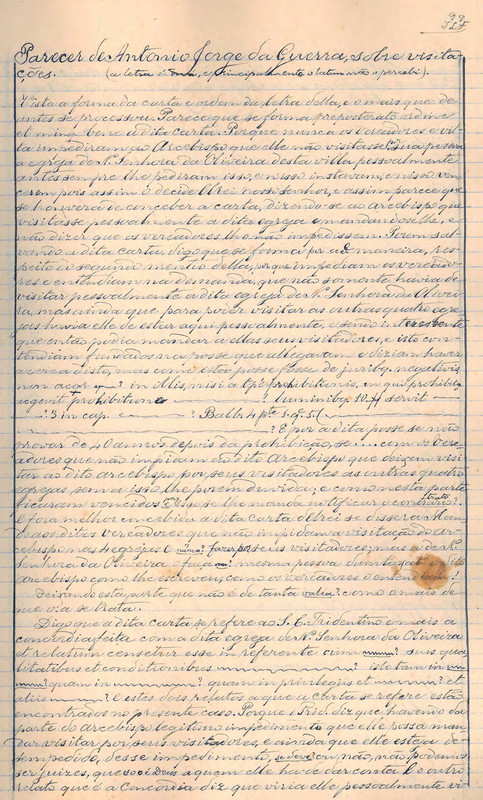 99
Parecer de Antonio Jorge da Guerra, sobre visita-
ções. (a letra é má, e principalmente o latim não o percebi).
Vista a forma da carta e ordem da letra della, e o mais que de
antes se processou. Parece que se forma prepostorato ordine
et minus bene a dita carta. Porque nunca os Vereadores e vil-
la impediram ao Arcebispo que elle não visitasse per sua pessoa
a egreja de N. Senhora da Oliveira desta villa pessoalmente
antes sempre lhe pediram isso, e nisso instavam, e nisso ven-
ceram pois assim o decide Elrei nosso Senhor, e assim parece que
se houvera de conceber a carta, dizendo-se ao Arcebispo que
visitasse pessoalmente a dita egreja e mandando-se lhe, e
não dizer que os vereadores lho não impedissem. Porem sal-
vando a dita carta, digo que se forma por a maneira, res-
peito do seguinte mentio della, porque impediam os vereado-
res e entendiam na demanda, que não somente havia de
visitar pessoalmente a dita egreja de N. Senhora da Olivei-
ra, mas ainda que para poder visitar as outras quatro egre-
jas havia elle de estar aqui pessoalmente, e sendo interessente
que então podia mandar a ellas seus visitadores, e isto con-
tendiam fundados na posse que allegavam e diziam haver
acerca disto, mas como esta posse fosse de juribq. negativis
non acqr ? in illis, nisi a tpe prohibitionis, en qui prohibitq
jegevit prohibitum ? luminibq. 10 ff servit
? 3 in cap. ? Balb. 4 pte 5. q. 5. (
? E por a dita posse se não
provar de 40 annos depois da prohibição, se .... com os Vere-
adores que não impidam ao dito Arcebispo que deixem visi-
tar ao dito arcebispo por seus visitadores as outras quatro
egrejas sem a isso lhe porem duvida, e como nesta parte
ficaram vencidos se lhe manda notificar o contrario?
E fora melhor concebida a dita carta Elrei se dissera Man-
da aos ditos vereadores que não impidam a visitação do Ar-
cebispo nas 4 egrejas e ? fazer por seus visitadores, mas a de N.
Senhora da Oliveira a faça ? mesma pessoa
arcebispo como lhe escreveu, como os vereadores
Deixando esta parte que não é de tanta valia? como a mais de
que via se trata.
Digo que a dita carta se refere ao S. C. Tridentino e mais a
concordia feita com a dita egreja de N. Senhora da Oliveira
et relatum censetur esse in referente cum ? suis qua
litatibus et conditionibus ? isto tam in
? quam in ? quam in privilegiis et ? et
aliis ? E estes dois relatos a que a carta se refere estão
encontrados no presente caso. Porque o Trid. diz que havendo da
parte do arcebispo legitimo impedimento que elle possa man-
dar visitar por seus visitadores, e ainda que elle esteja de
sempedido, desse impedimento, se deve ou não, não podemos
ser juizes, que só é Deus a quem elle ha de dar conta. E o outro
relato que é a Concordia diz que viria elle pessoalmente vi-